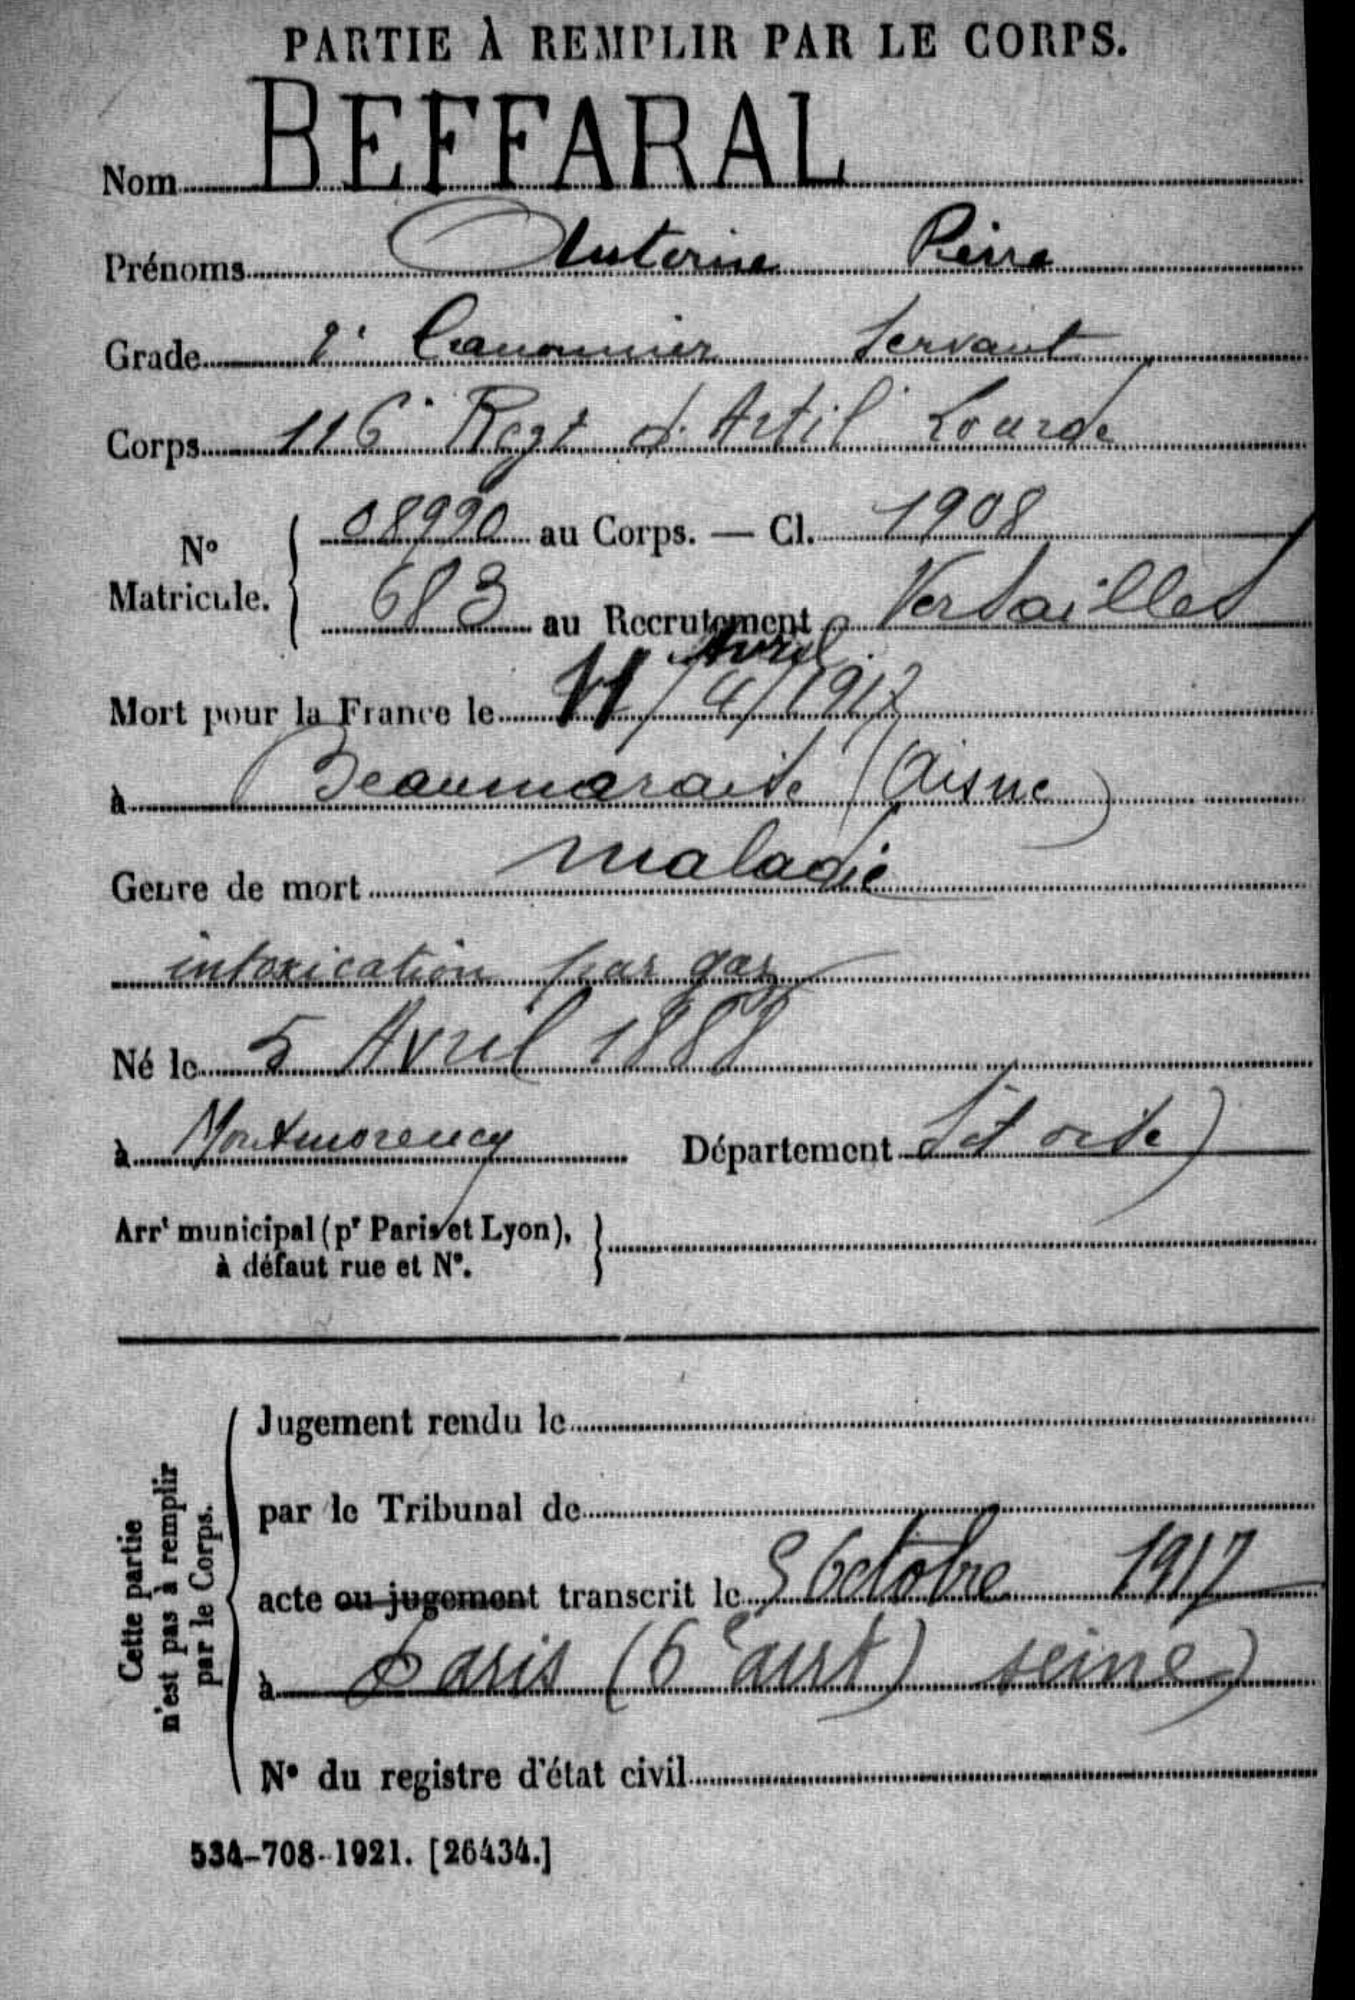 PARTIE À REMPLIR PAR LE CORPS.
Nom BEFFARAL
Prénoms Antoine Pierre
Grade 2e Canonnier Servant
Corps 116e Regt d'Artil Lourde
No Matricule. 08990 au Corps. — Cl. 1908
683 au Recrutement Versailles
Avril
Mort pour la France le 11/4/1917
à Beaumaraite (Aisne)
Genre de mort maladie
intoxication par gaz
Né le 5 Avril 1888
à Montmorency Département S et oise)
Arrt municipal (pr Paris et Lyon),
à défaut rue et No.
Cette partie
n'est pas à remplir
par le Corps.
Jugement rendu le
par le Tribunal de
acte ou jugement transcrit le 9 Octobre 1917
à Paris (6e arrt) seine)
No du registre d'état civil
534-708-1921. [26434.]